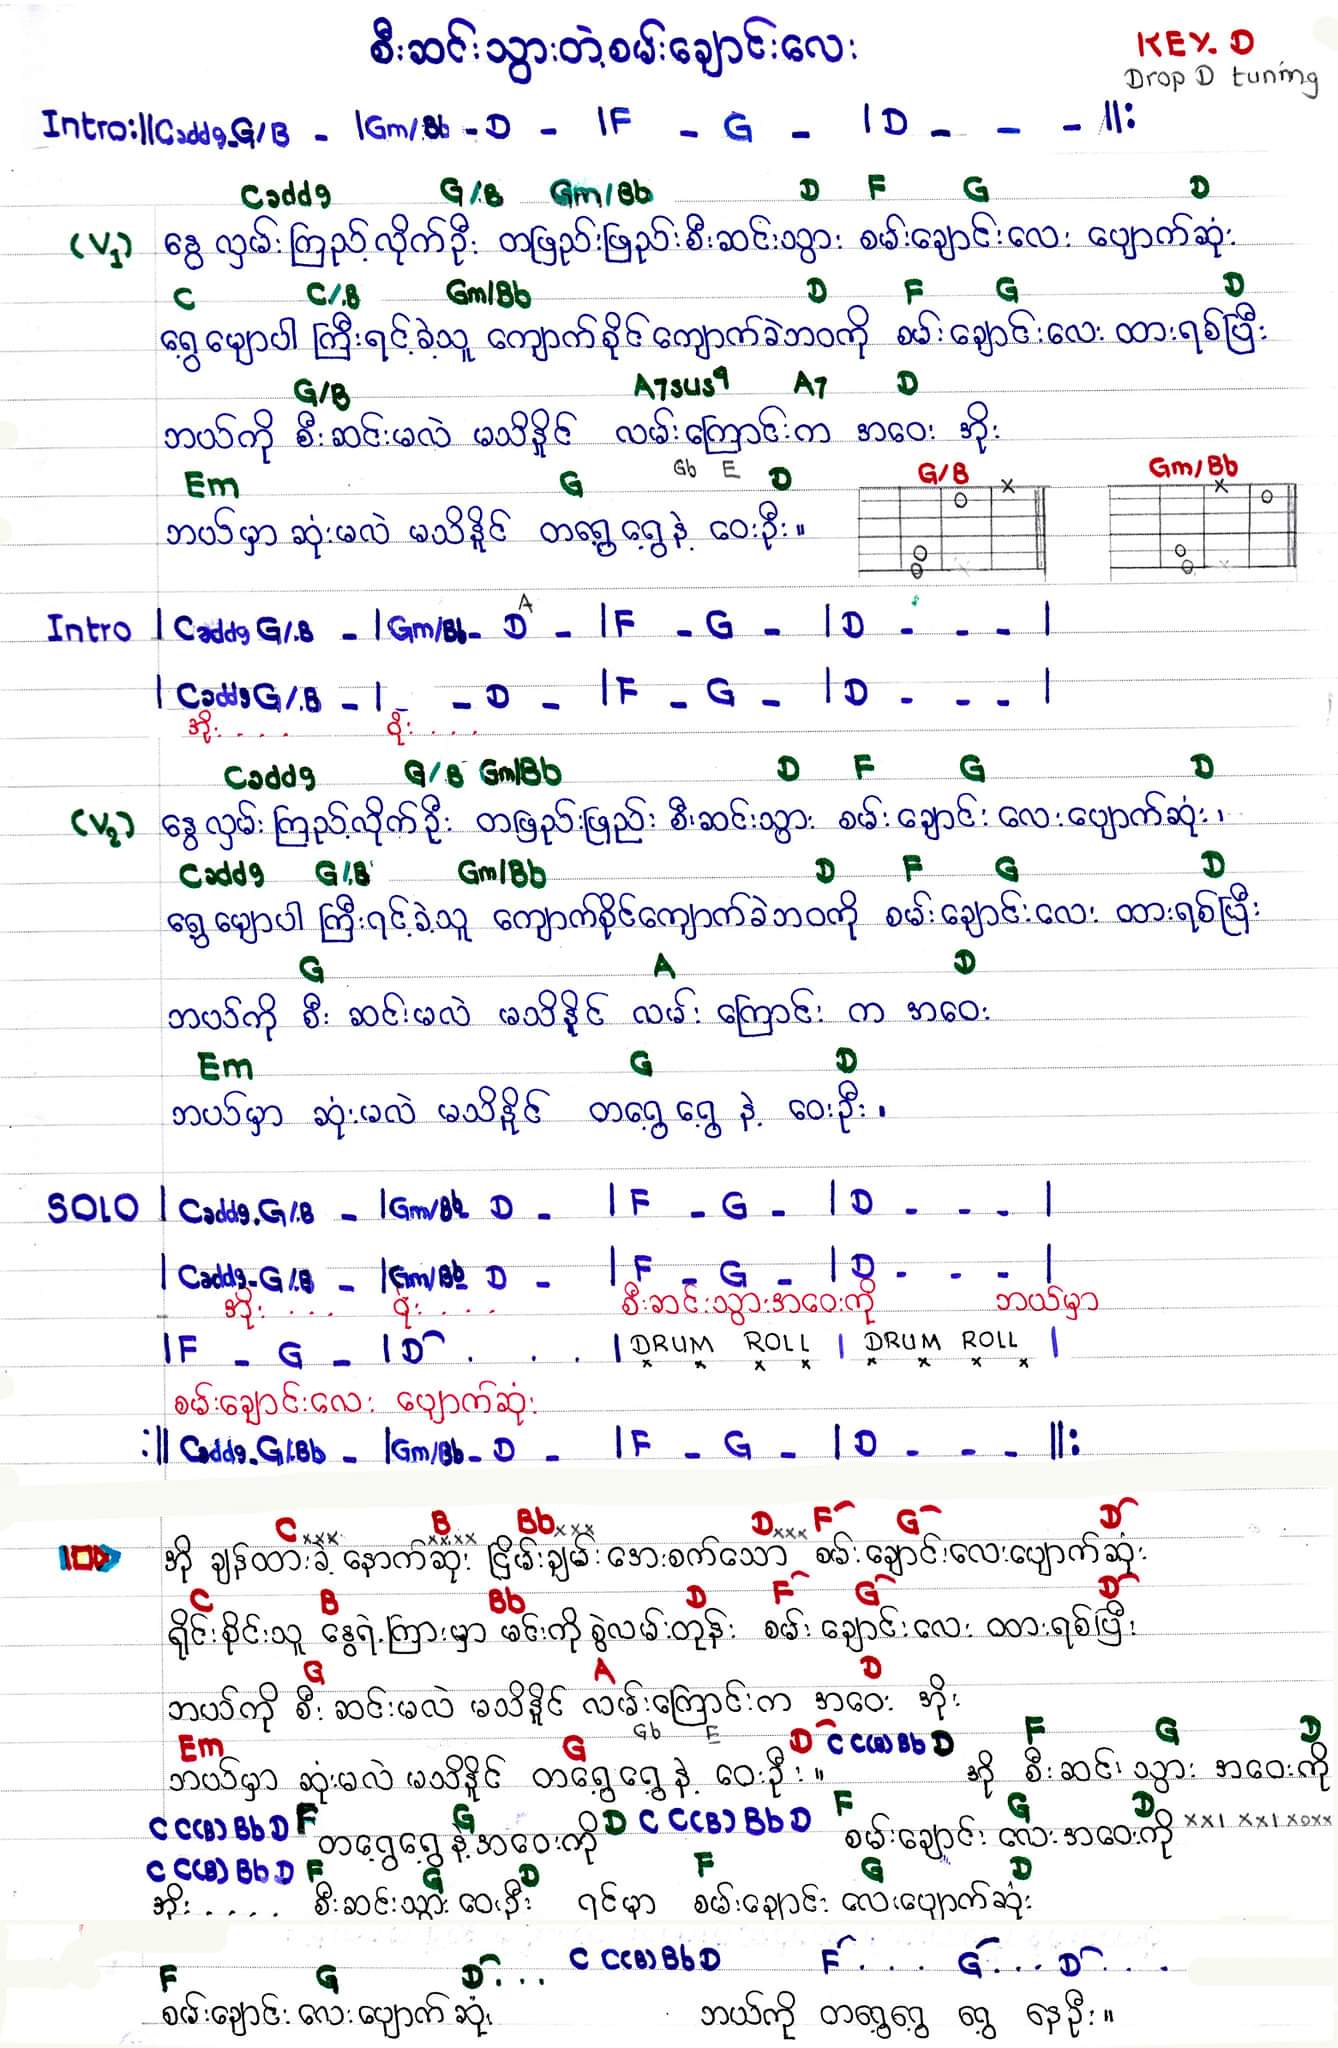 စီးဆင်းသွားတဲ့စမ်းချောင်းလေး
KEY. D
Drop D tuning
Intro:||Cadd9-G/B - |Gm/Bb - D - |F - G - |D - - - ||:
Cadd9 G/B Gm/Bb D F G D
(V1) နွေလှမ်းကြည့်လိုက်ဦး တဖြည်းဖြည်းစီးဆင်းသွား စမ်းချောင်းလေး ပျောက်ဆုံး
C C/B Gm/Bb D F G D
ရွှေမျောပါ ကြီးရင့်ခဲ့သူ ကျောက်စိုင်ကျောက်ခဲဘဝကို စမ်းချောင်းလေး ထားရစ်ပြီး
G/B A7sus4 A7 D
ဘယ်ကို စီးဆင်းမလဲ မသိနိုင် လမ်းကြောင်းက အဝေး အိုး
Em G Gb E D
ဘယ်မှာ ဆုံးမလဲ မသိနိုင် တရွေ့ရွေ့နဲ့ ဝေးဦး။
G/B Gm/Bb
Intro | Cadd9 G/B - |Gm/Bb - D A - |F - G - |D - - - |
| Cadd9 G/B - | - - D - |F - G - |D - - - |
အိုး. . . . ဝိုး. . . .
Cadd9 G/B Gm/Bb D F G D
(V2) နွေလှမ်းကြည့်လိုက်ဦး တဖြည်းဖြည်း စီးဆင်းသွား စမ်းချောင်းလေးပျောက်ဆုံး၊
Cadd9 G/B Gm/Bb D F G D
ရွှေမျောပါ ကြီးရင့်ခဲ့သူ ကျောက်စိုင်ကျောက်ခဲဘဝကို စမ်းချောင်းလေး ထားရစ်ပြီး
G A D
ဘယ်ကို စီးဆင်းမလဲ မသိနိုင် လမ်းကြောင်းက အဝေး
Em G D
ဘယ်မှာ ဆုံးမလဲ မသိနိုင် တရွေ့ရွေ့နဲ့ ဝေးဦး။
SOLO | Cadd9.G/B - |Gm/Bb D - |F - G - |D - - - |
| Cadd9-G/B - |Gm/Bb D - |F - G - |D - - - |
အိုး. . . . ဝိုး. . . . စီးဆင်းသွားအဝေးကို ဘယ်မှာ
|F - G - |D . . . |DRUM ROLL | DRUM ROLL |
x x x x x x x x
စမ်းချောင်းလေး ပျောက်ဆုံး
:|| Cadd9.G/Bb - |Gm/Bb - D - |F - G - |D - - - ||:
C xxx B xxxx Bb xxx D xxx F G D
အို ချန်ထားခဲ့ နောက်ဆုံး ငြိမ်းချမ်းအေးစက်သော စမ်းချောင်းလေးပျောက်ဆုံး
C B Bb D F G D
ရိုင်းစိုင်းသူ နွေရဲ့ကြားမှာ မင်းကိုစွဲလမ်းတုန်း စမ်းချောင်းလေး ထားရစ်ပြီး
G A D
ဘယ်ကို စီးဆင်းမလဲ မသိနိုင် လမ်းကြောင်းက အဝေး အိုး
Em G Gb E D C C(B) Bb D F G D
ဘယ်မှာ ဆုံးမလဲ မသိနိုင် တရွေ့ရွေ့နဲ့ ဝေးဦး။ အို စီးဆင်းသွား အဝေးကို
C C(B) Bb D F G D C C(B) Bb D F G D xxı xxı xoxx
တရွေ့ရွေ့နဲ့အဝေးကို စမ်းချောင်းလေးအဝေးကို
C C(B) Bb D F G D F G D
အိုး. . . . . စီးဆင်းသွားဝေးဦး ရင်မှာ စမ်းချောင်းလေးပျောက်ဆုံး
F G D . . . C C(B) Bb D F . . . G . . . D . . .
စမ်းချောင်းလေးပျောက်ဆုံး ဘယ်ကို တရွေ့ရွေ့ ရွေ့နေဦး။